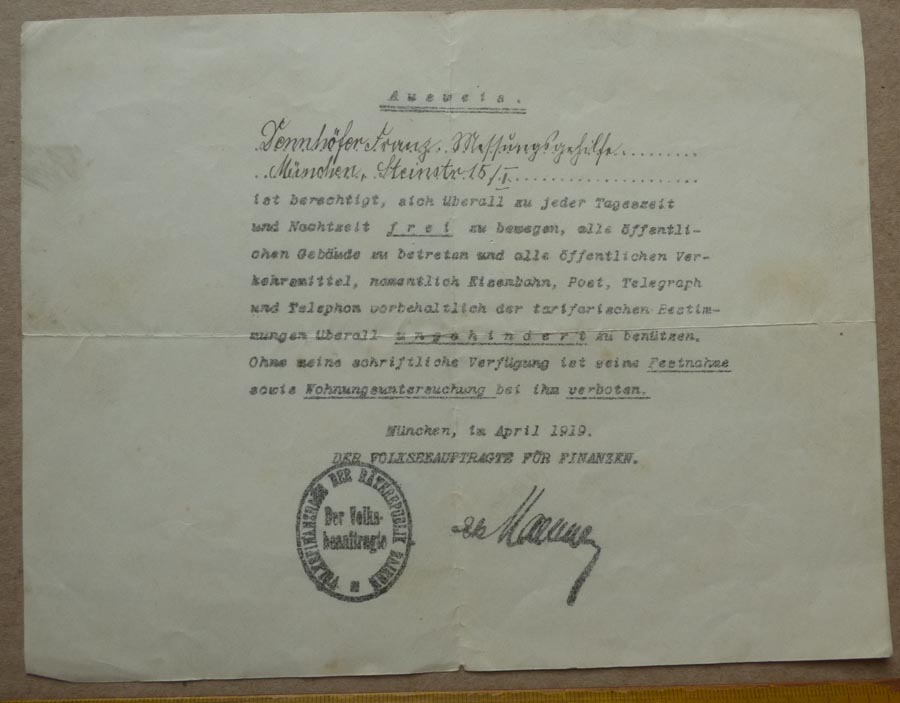 Ausweis.
Dennhöfer Franz. Messungsgehilfe.........
..München, Steinstr. 15/I......................
ist berechtigt, sich überall zu jeder Tageszeit
und Nachtzeit frei zu bewegen, alle öffentli-
chen Gebäude zu betreten und alle öffentlichen Ver-
kehrsmittel, namentlich Eisenbahn, Post, Telegraph
und Telephon vorbehaltlich der tarifarischen Bestim-
mungen überall ungehindert zu benützen.
Ohne meine schriftliche Verfügung ist seine Festnahme
sowie Wohnungsuntersuchung bei ihm verboten.
München, im April 1919.
DER VOLKSBEAUFTRAGTE FÜR FINANZEN.
DER RÄTEREPUBLIK BAIERN
Der Volks-
beauftragte